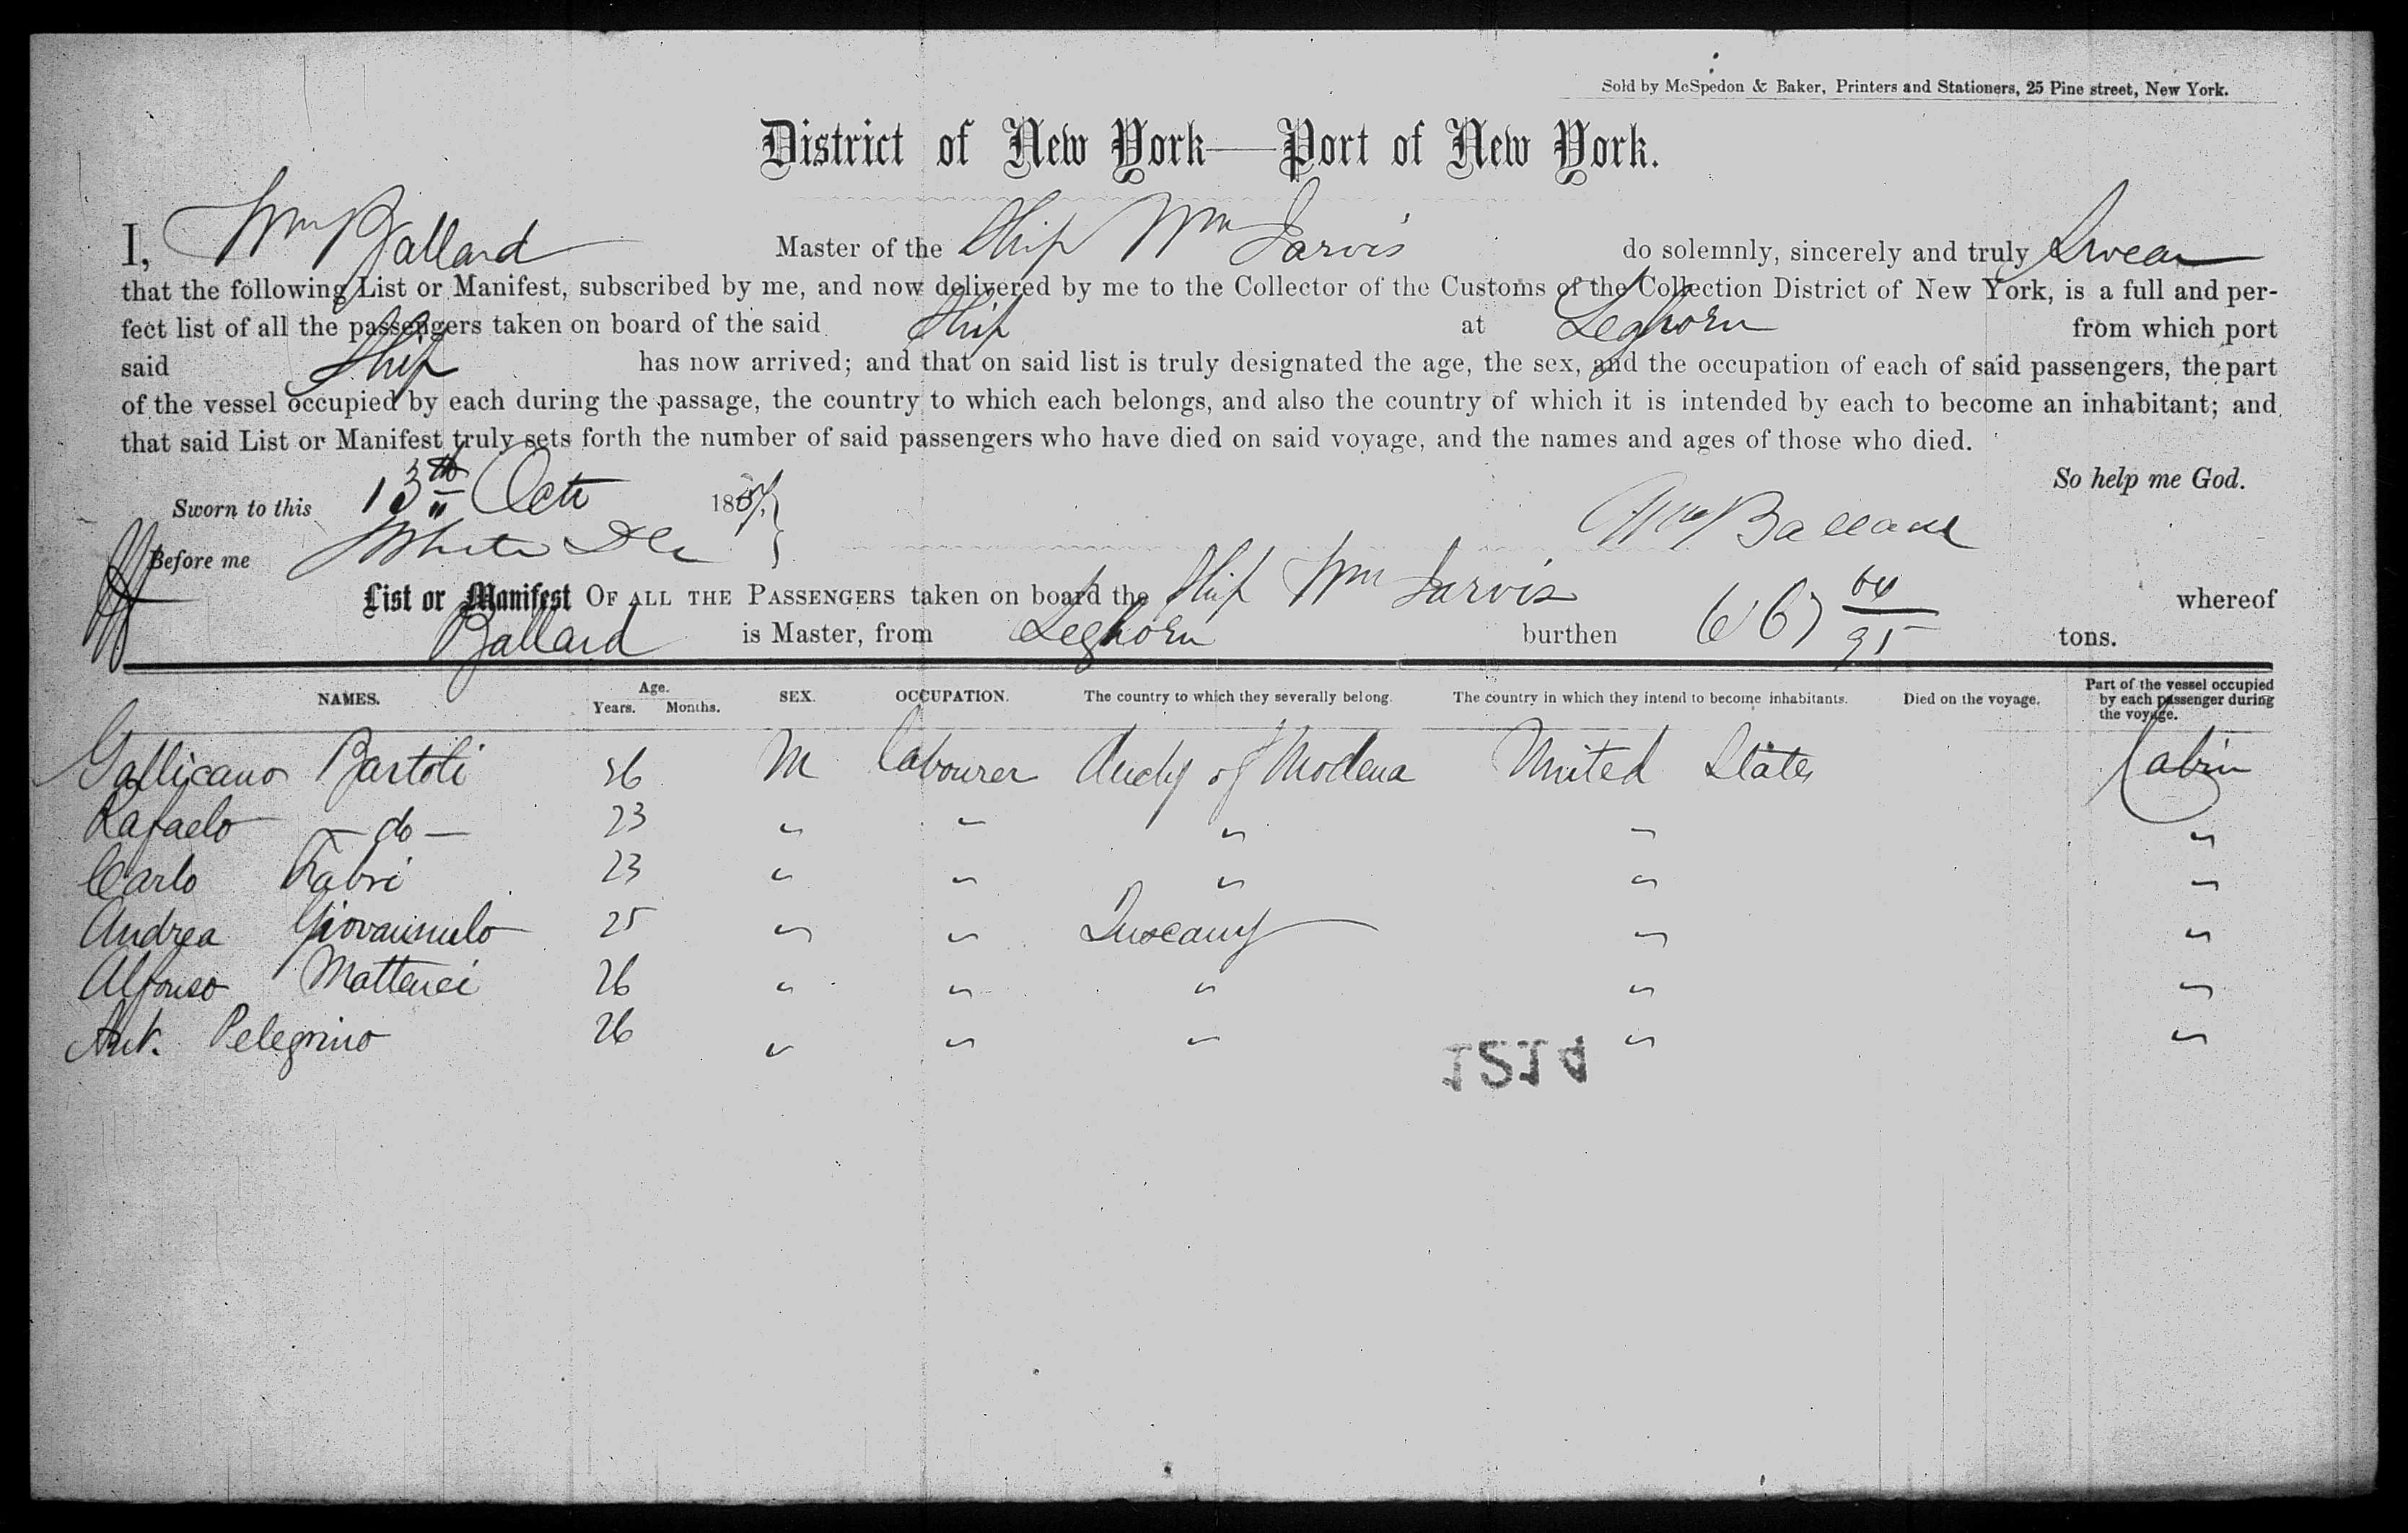 Sold by McSpedon & Baker, Printers and Stationers, 25 Pine street, New York.
District of New York—Port of New York.
I, Wm Ballard Master of the Ship Wm Jarvis do solemnly, sincerely and truly Swear
that the following List or Manifest, subscribed by me, and now delivered by me to the Collector of the Customs of the Collection District of New York, is a full and per-
fect list of all the passengers taken on board of the said Ship at Leghorn from which port
said Ship has now arrived; and that on said list is truly designated the age, the sex, and the occupation of each of said passengers, the part
of the vessel occupied by each during the passage, the country to which each belongs, and also the country of which it is intended by each to become an inhabitant; and
that said List or Manifest truly sets forth the number of said passengers who have died on said voyage, and the names and ages of those who died.
So help me God.
Sworn to this 13th Oct 185
Wm Ballard
Before me White
List or Manifest OF ALL THE PASSENGERS taken on board the Ship Wm Jarvis whereof
Ballard is Master, from Leghorn burthen 667 /95 tons.
NAMES. Age. Years. Months. SEX. OCCUPATION. The country to which they severally belong. The country in which they intend to become inhabitants. Died on the voyage. Part of the vessel occupied by each passenger during the voyage.
Gallicano Bartoli M Labourer Duchy of Modena United States Cabin
Rafaelo —do— 23 " " " " "
Carlo Fabri 23 " " " " "
Andrea 25 " " Tuscany " "
Alfonso 26 " " " " "
Ant. Pelegrino 26 " " " " "